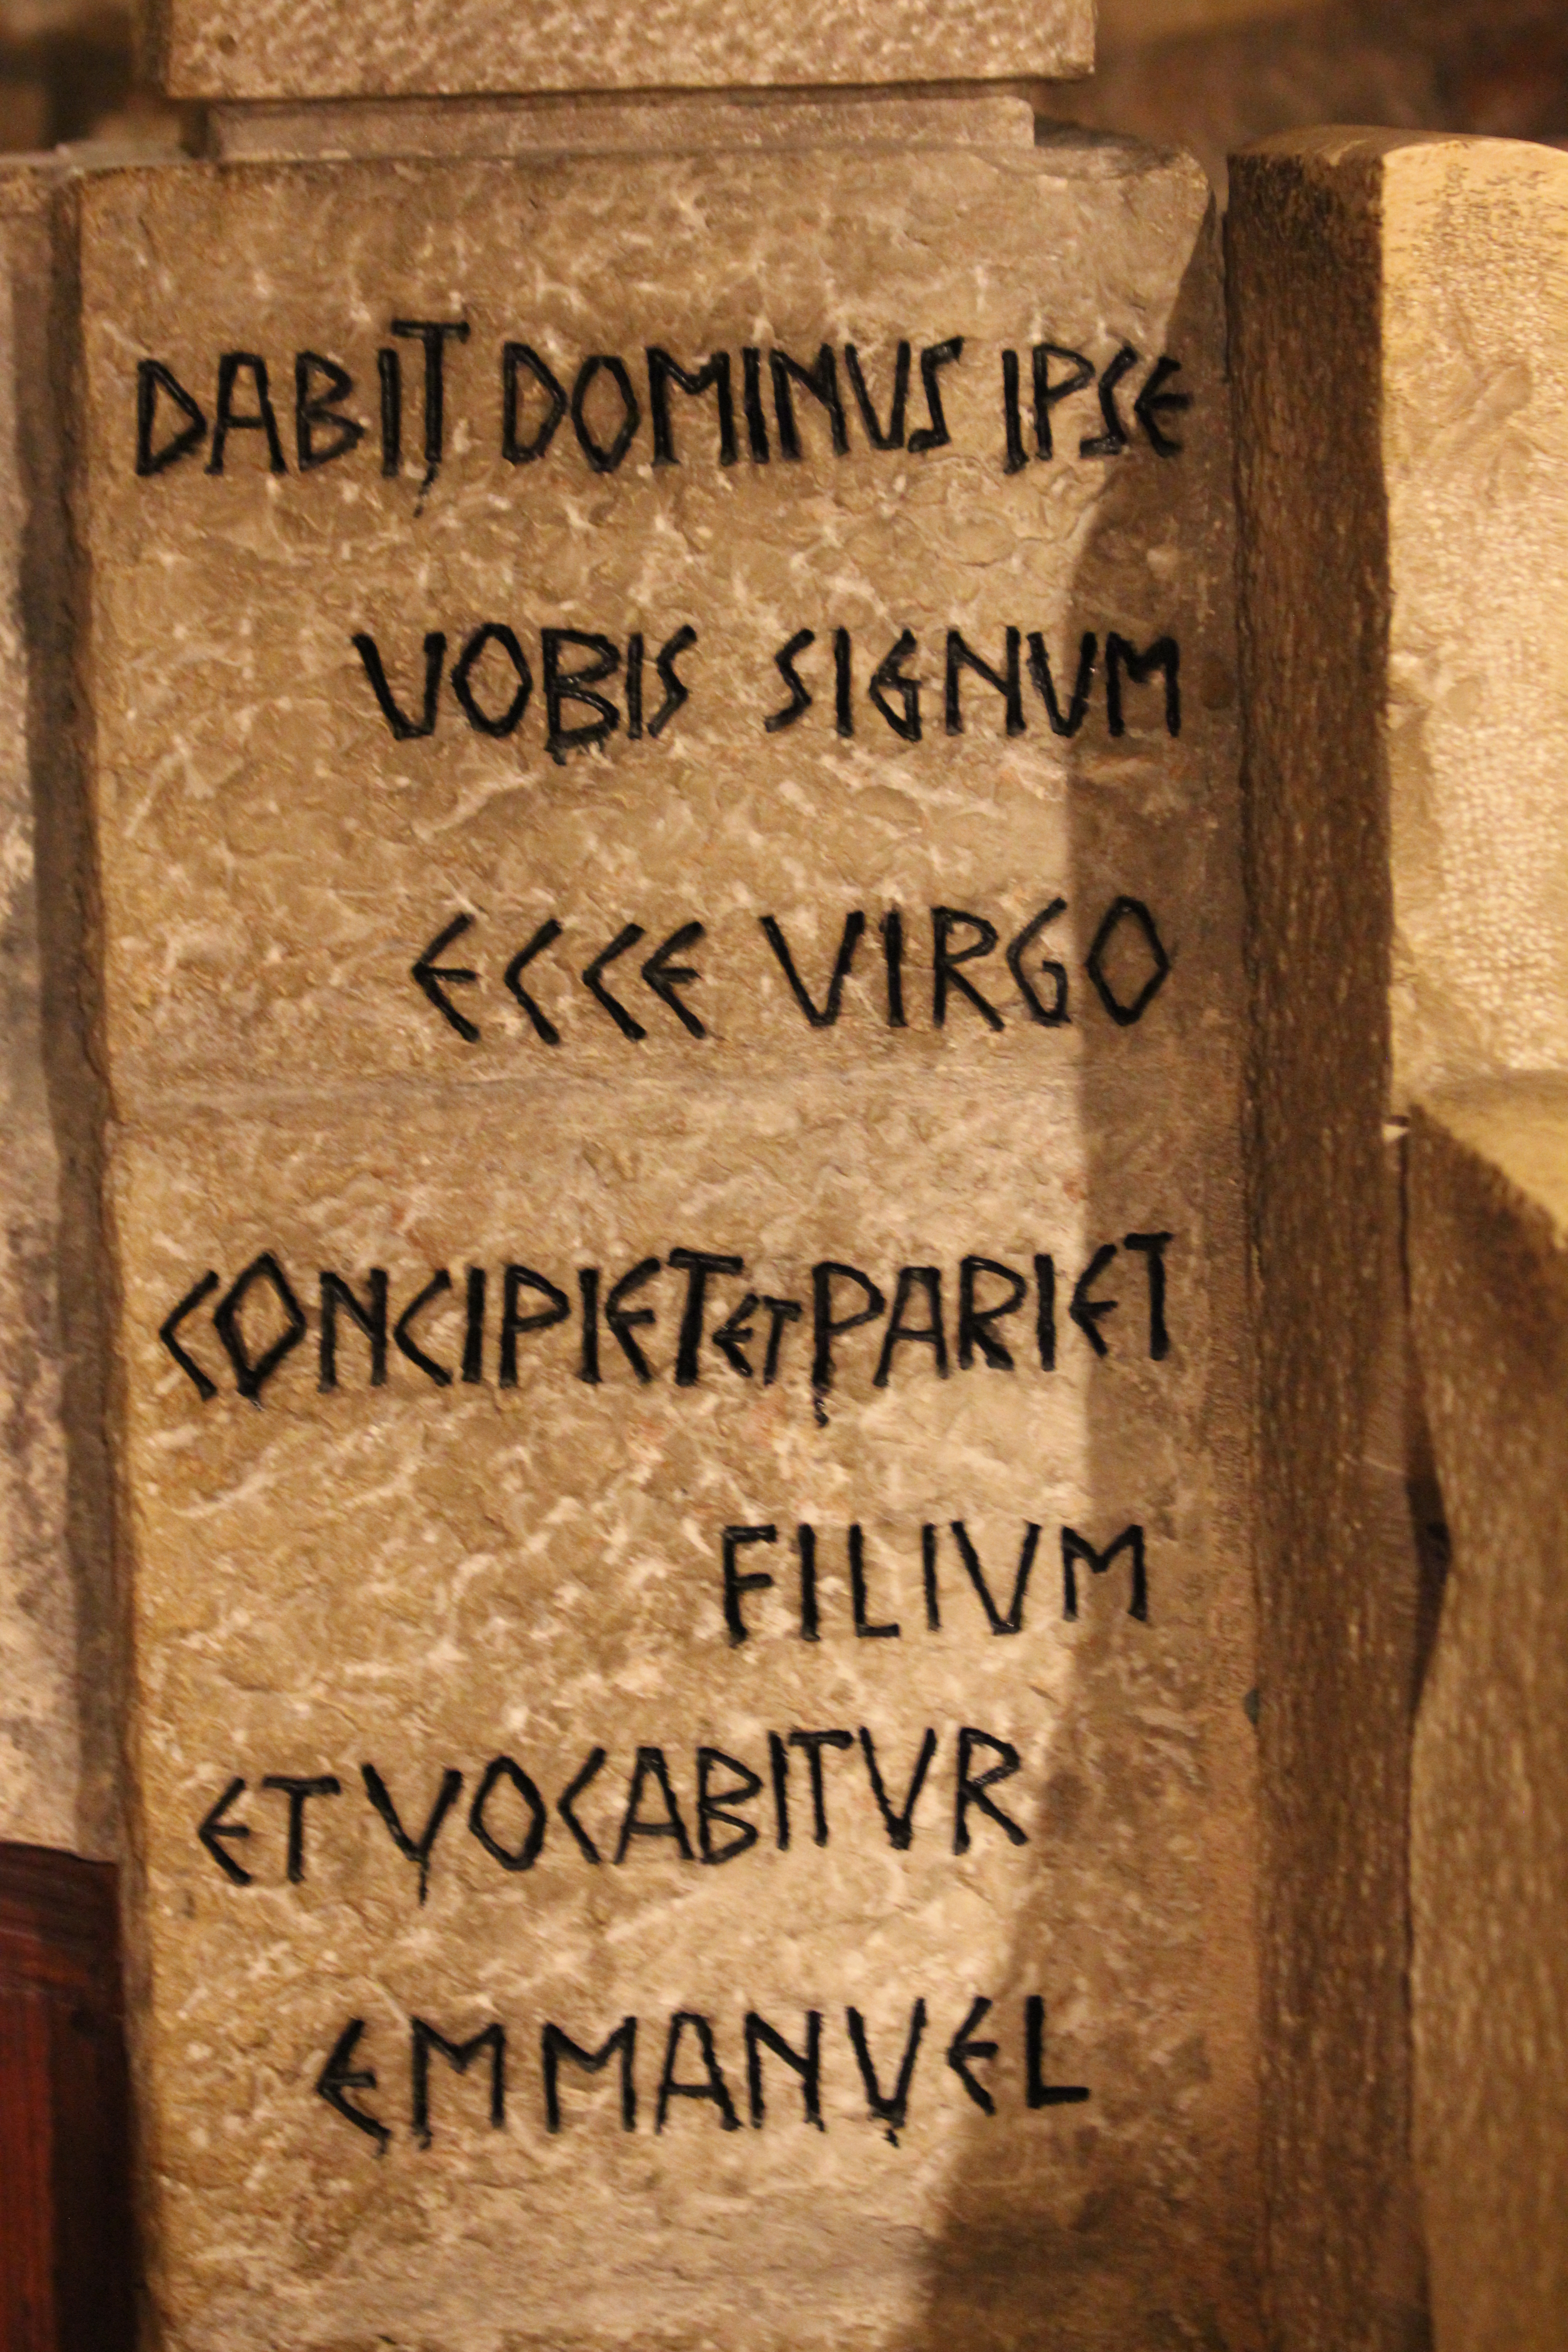 DABIT DOMINUS IPSE
VOBIS SIGNUM
ECCE VIRGO
CONCIPIET ET PARIET
FILIVM
ET VOCABITVR
EMMANVEL